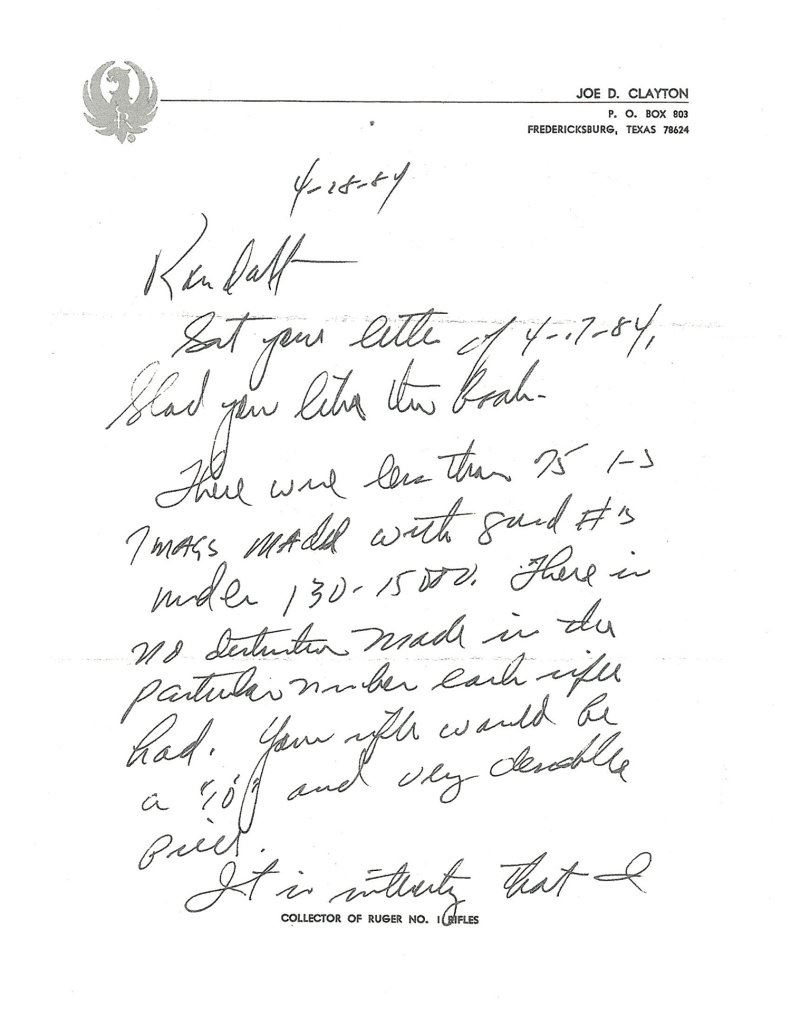 JOE D. CLAYTON
P. O. BOX 803
FREDERICKSBURG, TEXAS 78624
4-28-84
Randall
Got your letter of 4-17-84,
Glad you like the book-
There were less than 75 1-S
7 MAGS MADE with serial #'s
under 130-15000. There is
no distinction made in the
particular number each rifle
had. Your rifle would be
a "10" and very desirable
piece.
It is interesting that I
COLLECTOR OF RUGER NO. 1 RIFLES